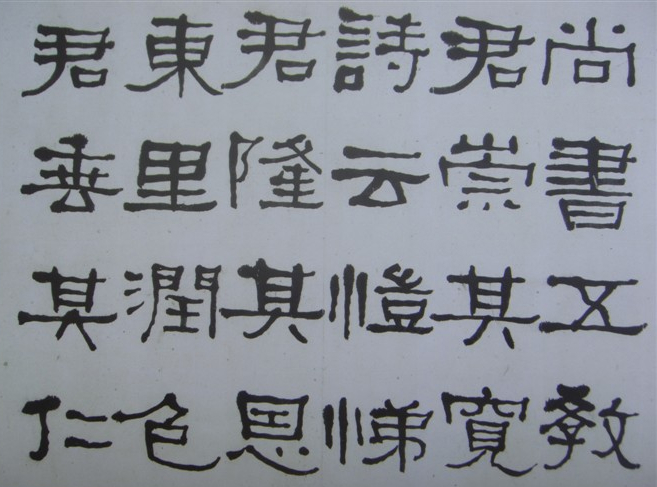 尚書五教
君崇其寬
詩云愷悌
君隆其恩
東里潤色
君垂其仁